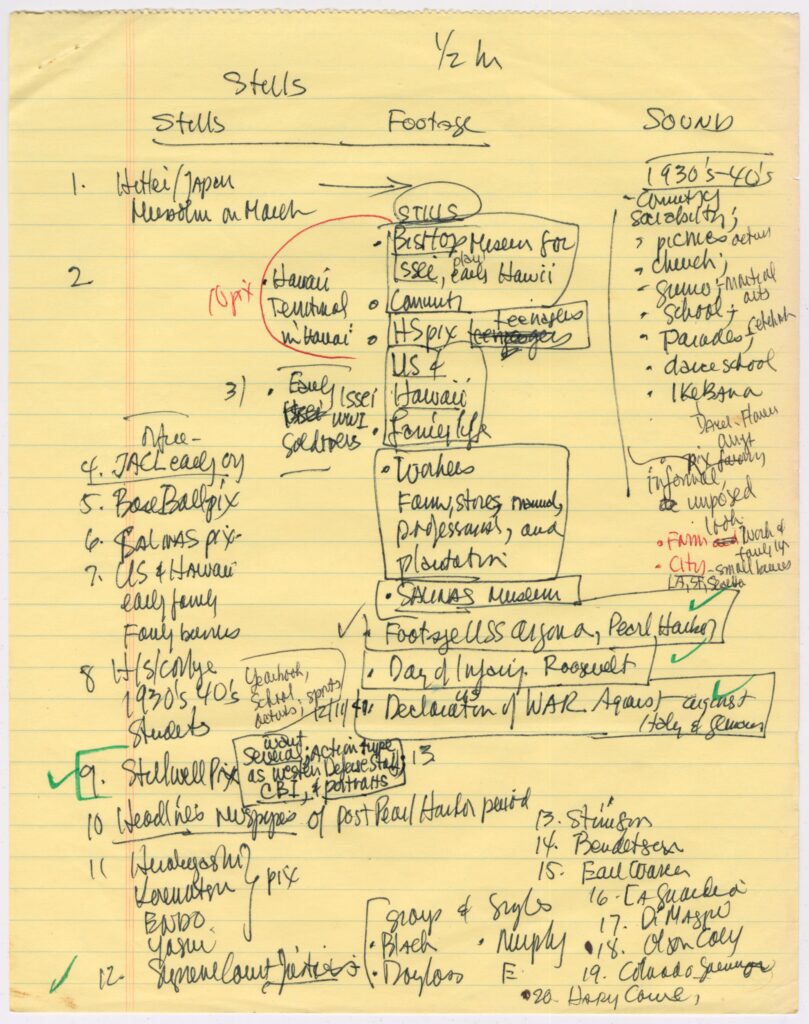 1/2 hr
Stells
Stells
Footage
SOUND
1930's-40's
1. Hitler/Japan
Mussolini on March
STILLS
• BISHOP Museum for
Issei, play early Hawaii
• Commty
• HS pix teenagers
2
10 pix
• Hawaii
Territorial
in Hawaii
US &
Hawaii
• family life
3) • Early Issei
WWI
soldiers
• Workers
Farm, stores,
professionals, and
plantation
• SALINAS Museum
- Country
sociability;
, picnics
, church;
, sumo; - martial arts
• school +
, parades,
• dance school
• IKEBANA
informal,
unposed
look
• Farm Work &
family life
• City - small business
LA, SF, Seattle
4. JACL early on
5. Base Ball pix
6. SALINAS pix-
7. US & Hawaii
early family
Family business
✓ • Footage USS Arizona, Pearl Harbor ✓
• Day of Infamy. Roosevelt ✓
• Declaration of WAR. Against - against ✓
US
Italy & Germany
8 H/S/College
1930's 40's
Students
Yearbook,
School
sports
✓ 9. Stillwell Pix
want
several: Action type
as Western Defense Staff,
CBI, & portraits
: 13
10 Headlines Newspapers of post Pearl Harbor period
11 Hirabayashi
Korematsu
ENDO
Yasui
pix
✓ 12. Supreme Court Justices
Group & Singles
• Black • Murphy
• Douglass E
13. Stimson
14. Bendetsen
15. Earl Warren
16. LaGuardia
17. DiMaggio
18. Olson
19. Colorado
20.